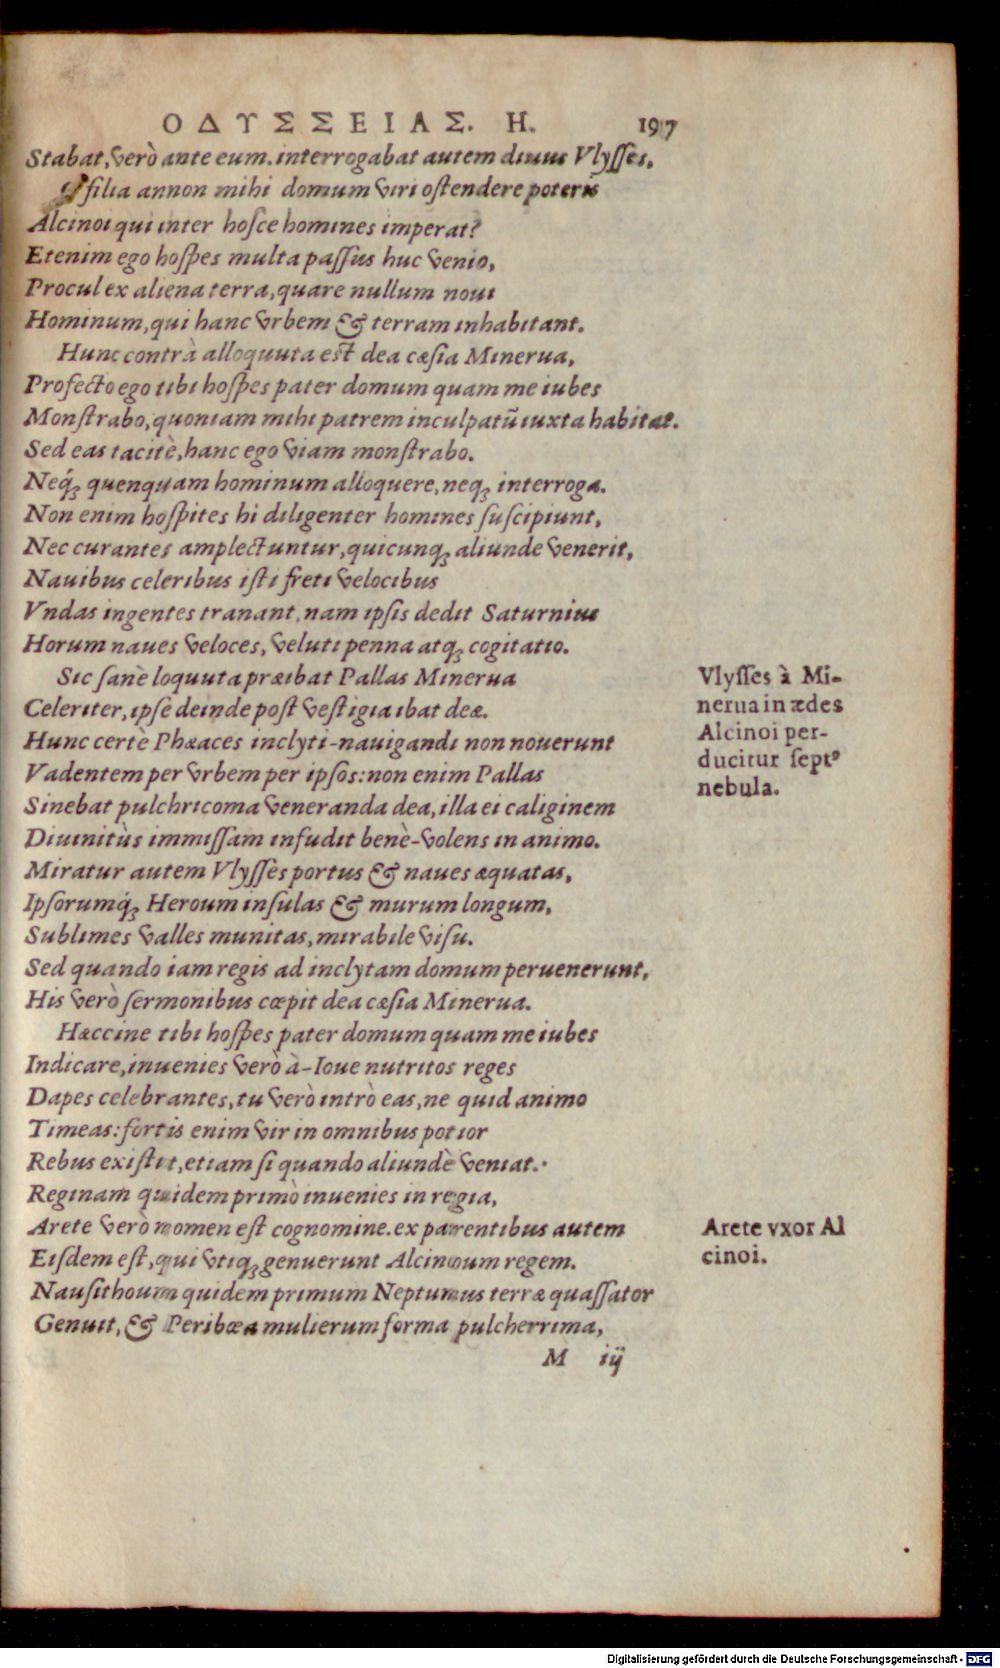 ΟΔΥΣΣΕΙΑΣ. Η. 197
Stabat, verò ante eum. interrogabat autem diuus Vlysses.
O filia annon mihi domum viri ostendere poteris
Alcinoi qui inter hosce homines imperat?
Etenim ego hospes multa passus huc venio,
Procul ex aliena terra, quare nullum noui
Hominum, qui hanc vrbem & terram inhabitant.
Hunc contrà alloquuta est dea cæsia Minerua,
Profecto ego tibi hospes pater domum quam me iubes
Monstrabo, quoniam mihi patrem inculpatũ iuxta habitat.
Sed eas tacitè, hanc ego viam monstrabo.
Neq́ꝫ quenquam hominum alloquere, neqꝫ interroga.
Non enim hospites hi diligenter homines suscipiunt,
Nec curantes amplectuntur, quicunqꝫ aliunde venerit,
Nauibus celeribus isti freti velocibus
Vndas ingentes tranant, nam ipsis dedit Saturnius
Horum naues veloces, veluti penna atqꝫ cogitatio.
Sic sanè loquuta præibat Pallas Minerua
Celeriter, ipse deinde post vestigia ibat deæ.
Hunc certè Phæaces inclyti-nauigandi non nouerunt
Vadentem per vrbem per ipsos: non enim Pallas
Sinebat pulchricoma veneranda dea, illa ei caliginem
Diuinitùs immissam infudit benè-volens in animo.
Miratur autem Vlysses portus & naues æquatas,
Ipsorumq́ꝫ Heroum insulas & murum longum,
Sublimes valles munitas, mirabile visu.
Sed quando iam regis ad inclytam domum peruenerunt,
His verò sermonibus cœpit dea cæsia Minerua.
Hæccine tibi hospes pater domum quam me iubes
Indicare, inuenies verò à-Ioue nutritos reges
Dapes celebrantes, tu verò intrò eas, ne quid animo
Timeas: fortis enim vir in omnibus potior
Rebus existit, etiam si quando aliundè veniat.
Reginam quidem primò inuenies in regia,
Arete verò nomen est cognomine. ex parentibus autem
Eisdem est, qui vtiqꝫ genuerunt Alcinoum regem.
Nausithoum quidem primum Neptunus terræ quassator
Genuit, & Peribœa mulierum forma pulcherrima,
M iij
Vlysses à Mi-
nerua in ædes
Alcinoi per-
ducitur septꝰ
nebula.
Arete vxor Al
cinoi.
Digitalisierung gefördert durch die Deutsche Forschungsgemeinschaft - DFG